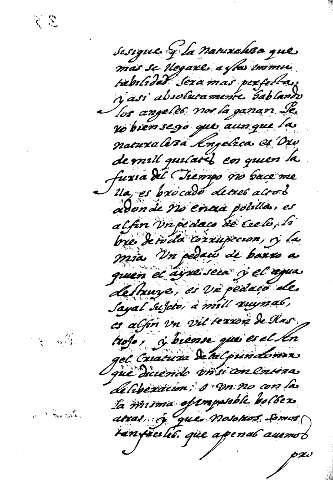 sesigue q̃ la naturaleza que
mas se llegare a esta inmu
tabilidad sera mas perfecta
y asi absolutamente hablando
los angeles nos la ganan. Pe
ro bien se yo que aunque la
naturaleza Angelica es Oro
de mil quilates en quien la
furia del tiempo no hace me
lla, es brocado de tres altos
adonde no entra polilla, es
al fin un pedaço de Cielo, li
bre de toda corrupcion, y la
mia un pedaço de barro a
quien el ayre seca y el agua
destruye, es un pedaço de
sayal sujeto, a mil ruynas,
es al fin un vil terron de Ras
trojo, y bien se que es el An
gel Criatura de tal pundonor
que diciendo un si con entera
deliberacion; o un no con la
la misma es imposible bolber
atras, y que nosotros somos
tan faciles que apenas avemos
pro